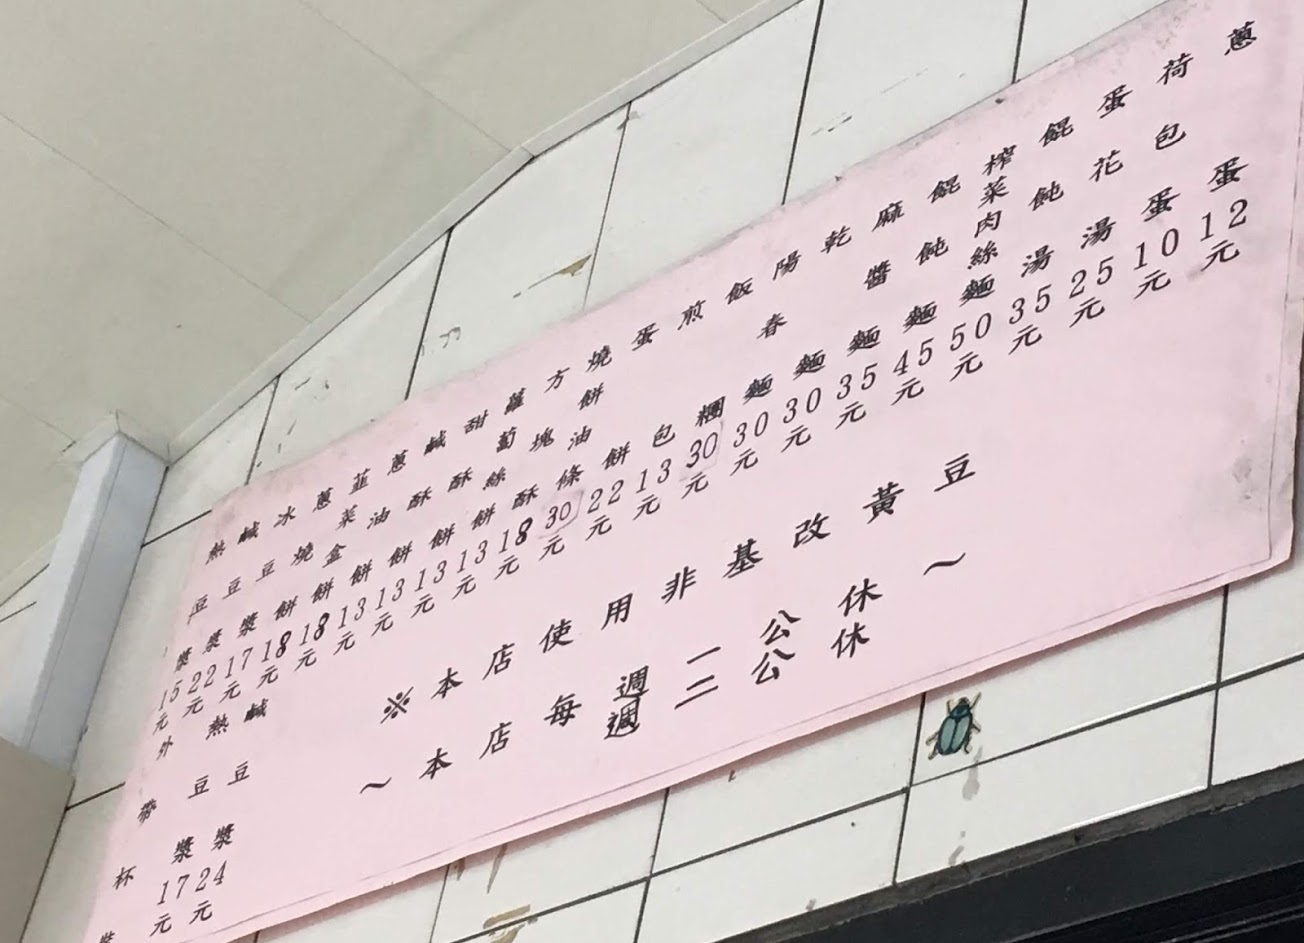 熱豆漿15元
鹹豆漿22元
冰豆漿17元
蔥燒餅18元
韮菜盒餅18元
蔥油餅13元
鹹酥餅13元
甜酥餅13元
蘿蔔絲餅13元
方塊酥18元
燒餅油條30元
蛋餅22元
煎包13元
飯糰30元
陽春麵30元
乾麵30元
麻醬麵35元
餛飩麵45元
榨菜肉絲麵50元
餛飩湯35元
蛋花湯25元
荷包蛋10元
蔥蛋12元
外帶杯裝
熱豆漿17元
鹹豆漿24元
※本店使用非基改黃豆
～本店每週一公休～
週二公休